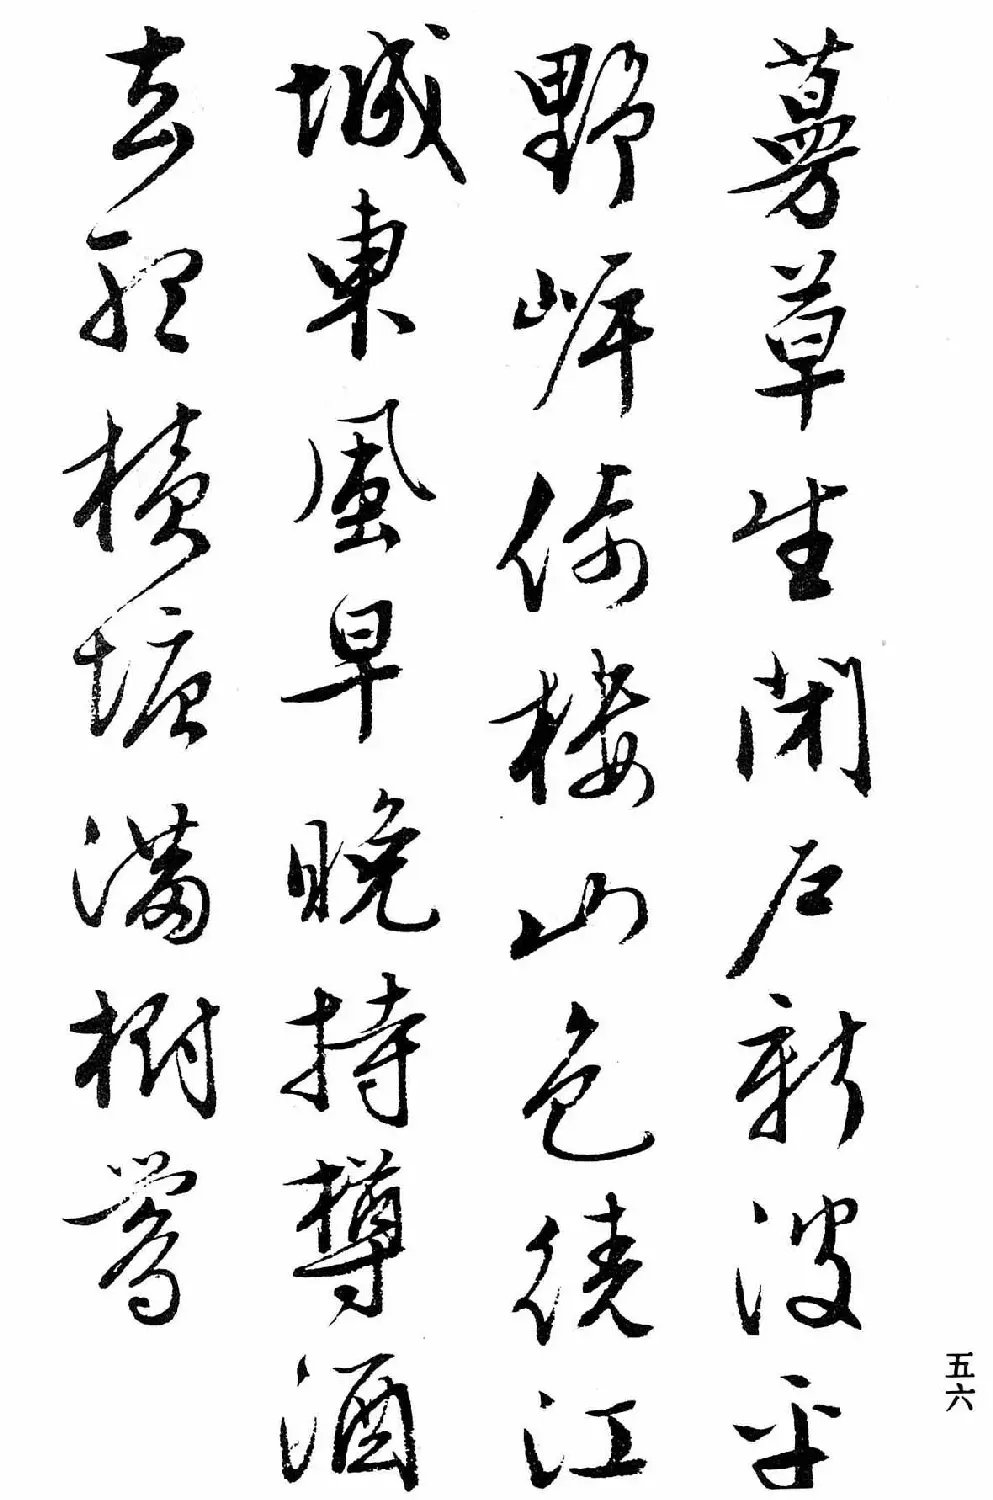 蔓草生閉戶新波平
野岸倚樓山色繞江
城東風早晚持樽酒
去聽橫塘滿樹鶯
五六